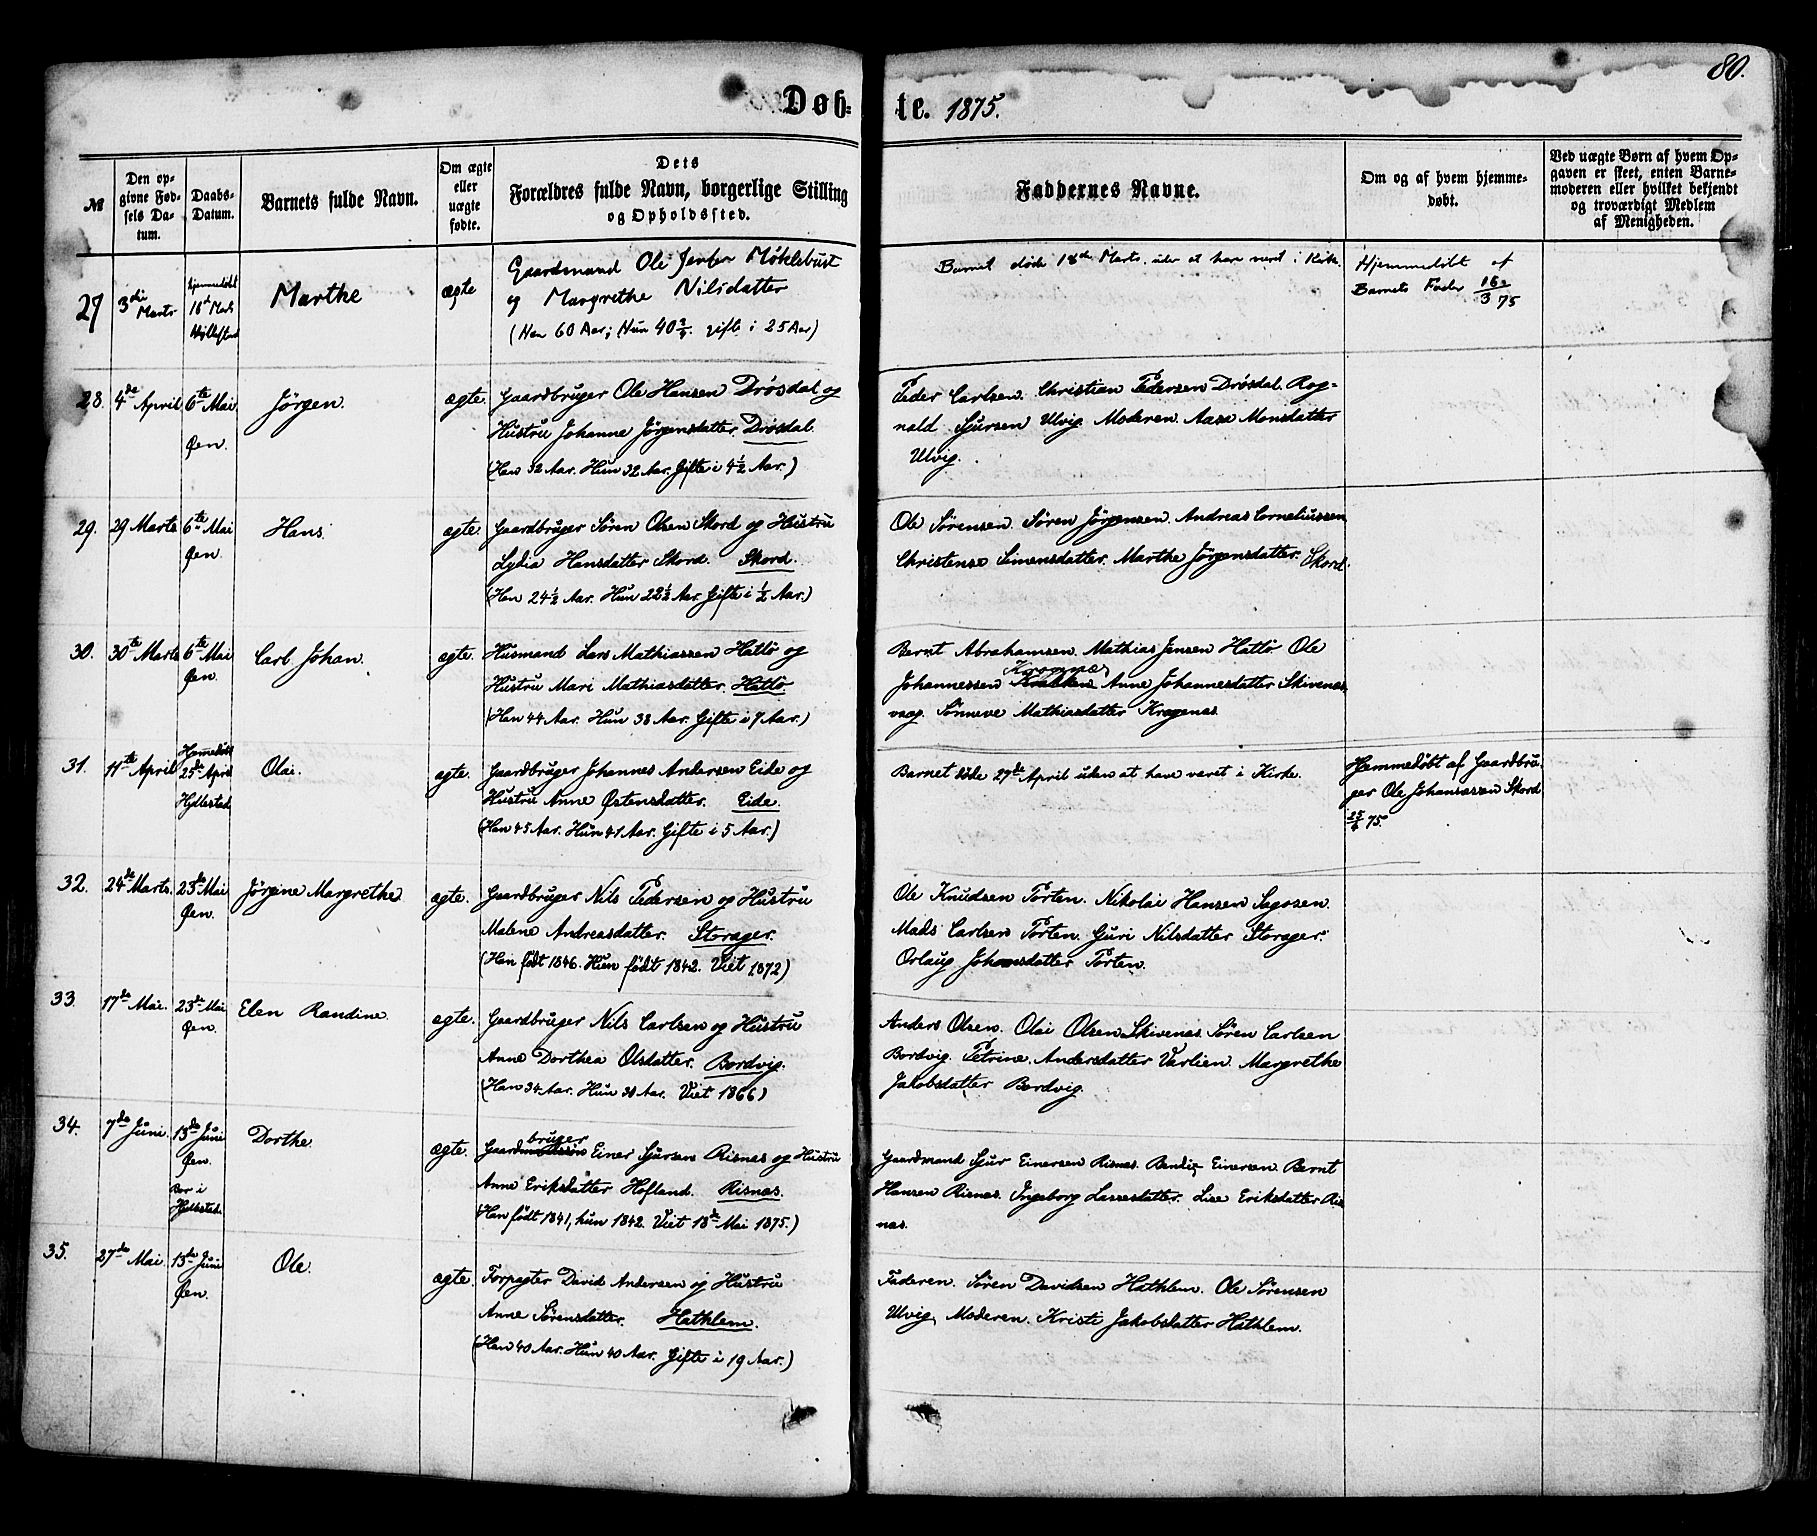 80.
Døb-te. 1875.
№
Den opgivne Fødsels Datum.
Daabs-Datum.
Barnets fulde Navn.
Om ægte eller uægte fødte.
Dets Forældres fulde Navn, borgerlige Stilling og Opholdssted.
Faddernes Navne.
Om og af hvem hjemmedøbt.
Ved uægte Børn af hvem Opgaven er skeet, enten Barnemoderen eller hvilket bekjendt og troværdigt Medlem af Menigheden.
27
3die Marts
Hjemmedøbt 16de Marts Hyllestad
Marthe
ægte
Gaardmand Ole Jensen Møklebust
og Margrethe Nilsdatter
(Han 60 Aar; Hun 40 gifte i 25 Aar)
Barnet døde 18de Marts uden at have været i Kirke.
Hjemmedøbt af
Barnets Fader 16/3 75
28.
4de April
6te Mai
Øen.
Jörgen.
ægte.
Gaardbruger Ole Hansen Drösdal og
Hustru Johanne Jörgensdatter. Drösdal.
(Han 32 Aar. Hun 32 Aar. Gifte i 4½ Aar.)
Peder Carlsen. Christian Pedersen Drösdal. Rog-
nald Sjursen Ulvig. Moderen. Aasa Monsdatter
Ulvig.
29.
29 Marts
6te Mai
Øen.
Hans
ægte.
Gaardbruger Sören Olsen Skord og Hustru
Lydia Hansdatter Skord. Skord.
(Han 24½ Aar. Hun 22½ Aar. Gifte i ½ Aar.)
Ole Sörensen. Sören Jörgensen. Andreas Corneliussen
Christense Simensdatter. Marthe Jörgensdatter. Skord.
30.
30te Marts
6te Mai
Øen.
Carl Johan.
ægte.
Husmand Lars Mathiassen Hattö og
Hustru Mari Mathiasdatter. Hattö.
(Han 44 Aar. Hun 38 Aar. Gifte i 7 Aar.)
Bernt Abrahamsen. Mathias Jensen Hattö Ole
Johannessen Anne Johannesdatter Skivenes
vaag. Sönneve Mathiasdatter Kragenas.
31.
11te April
Hjemmedøbt
25de April
Hyllestad
Olai.
ægte.
Gaardbruger Johannes Andersen Eide og
Hustru Anne Østensdatter. Eide.
(Han 45 Aar. Hun 41 Aar. Gifte i 5 Aar.)
Barnet döde 27de April uden at have været i Kirke.
Hjemmedøbt af Gaardbru-
ger Ole Johanessen Skord
25/4 75.
32.
24de Marts.
23de Mai
Øen.
Jörgine Margrethe
ægte.
Gaardbruger Nils Pedersen og Hustru
Malene Andreasdatter. Storager.
(Han født 1846. Hun født 1842. Viet 1872)
Ole Knudsen Porten. Nikolai Hansen Sagosen.
Mads Carlsen Porten. Guri Nilsdatter Storager.
Orlaug Johansdatter Porten.
33.
17de Mai.
23de Mai
Øen.
Elen Randine.
ægte.
Gaardbruger Nils Carlsen og Hustru
Anne Dorthea Olsdatter. Bordvig.
(Han 34 Aar. Hun 38 Aar. Viet 1866)
Anders Olsen. Olai Olsen Skivenas. Sören Carlsen
Bordvig. Petrine Andersdatter Varlien. Margrethe
Jakobsdatter Bordvig.
34.
7de Juni.
13de Juni
Øen.
Bor i
Hyllestad.
Dorthe.
ægte.
bruger
Gaard Einer Sjursen Risnas og Hustru
Anne Eriksdatter Hofland. Risnas.
(Han født 1841, hun 1842. Viet 18de Mai 1875.)
Gaardmand Sjur Einersen Risnas. Bendik Einersen. Bernt
Hansen Risnas. Ingeborg Lassesdatter. Lise Eriksdatter Ris
nas.
35.
27de Mai
13de Juni
Øen.
Ole.
ægte.
Forpagter David Andersen og Hustru
Anne Sörensdatter. Hathlem.
(Han 40 Aar. Hun 40 Aar. Gifte i 19 Aar.)
Faderen. Sören Davidsen Hathlem. Ole Sörensen
Ulvig. Moderen. Kristi Jakobsdatter Hathlem.